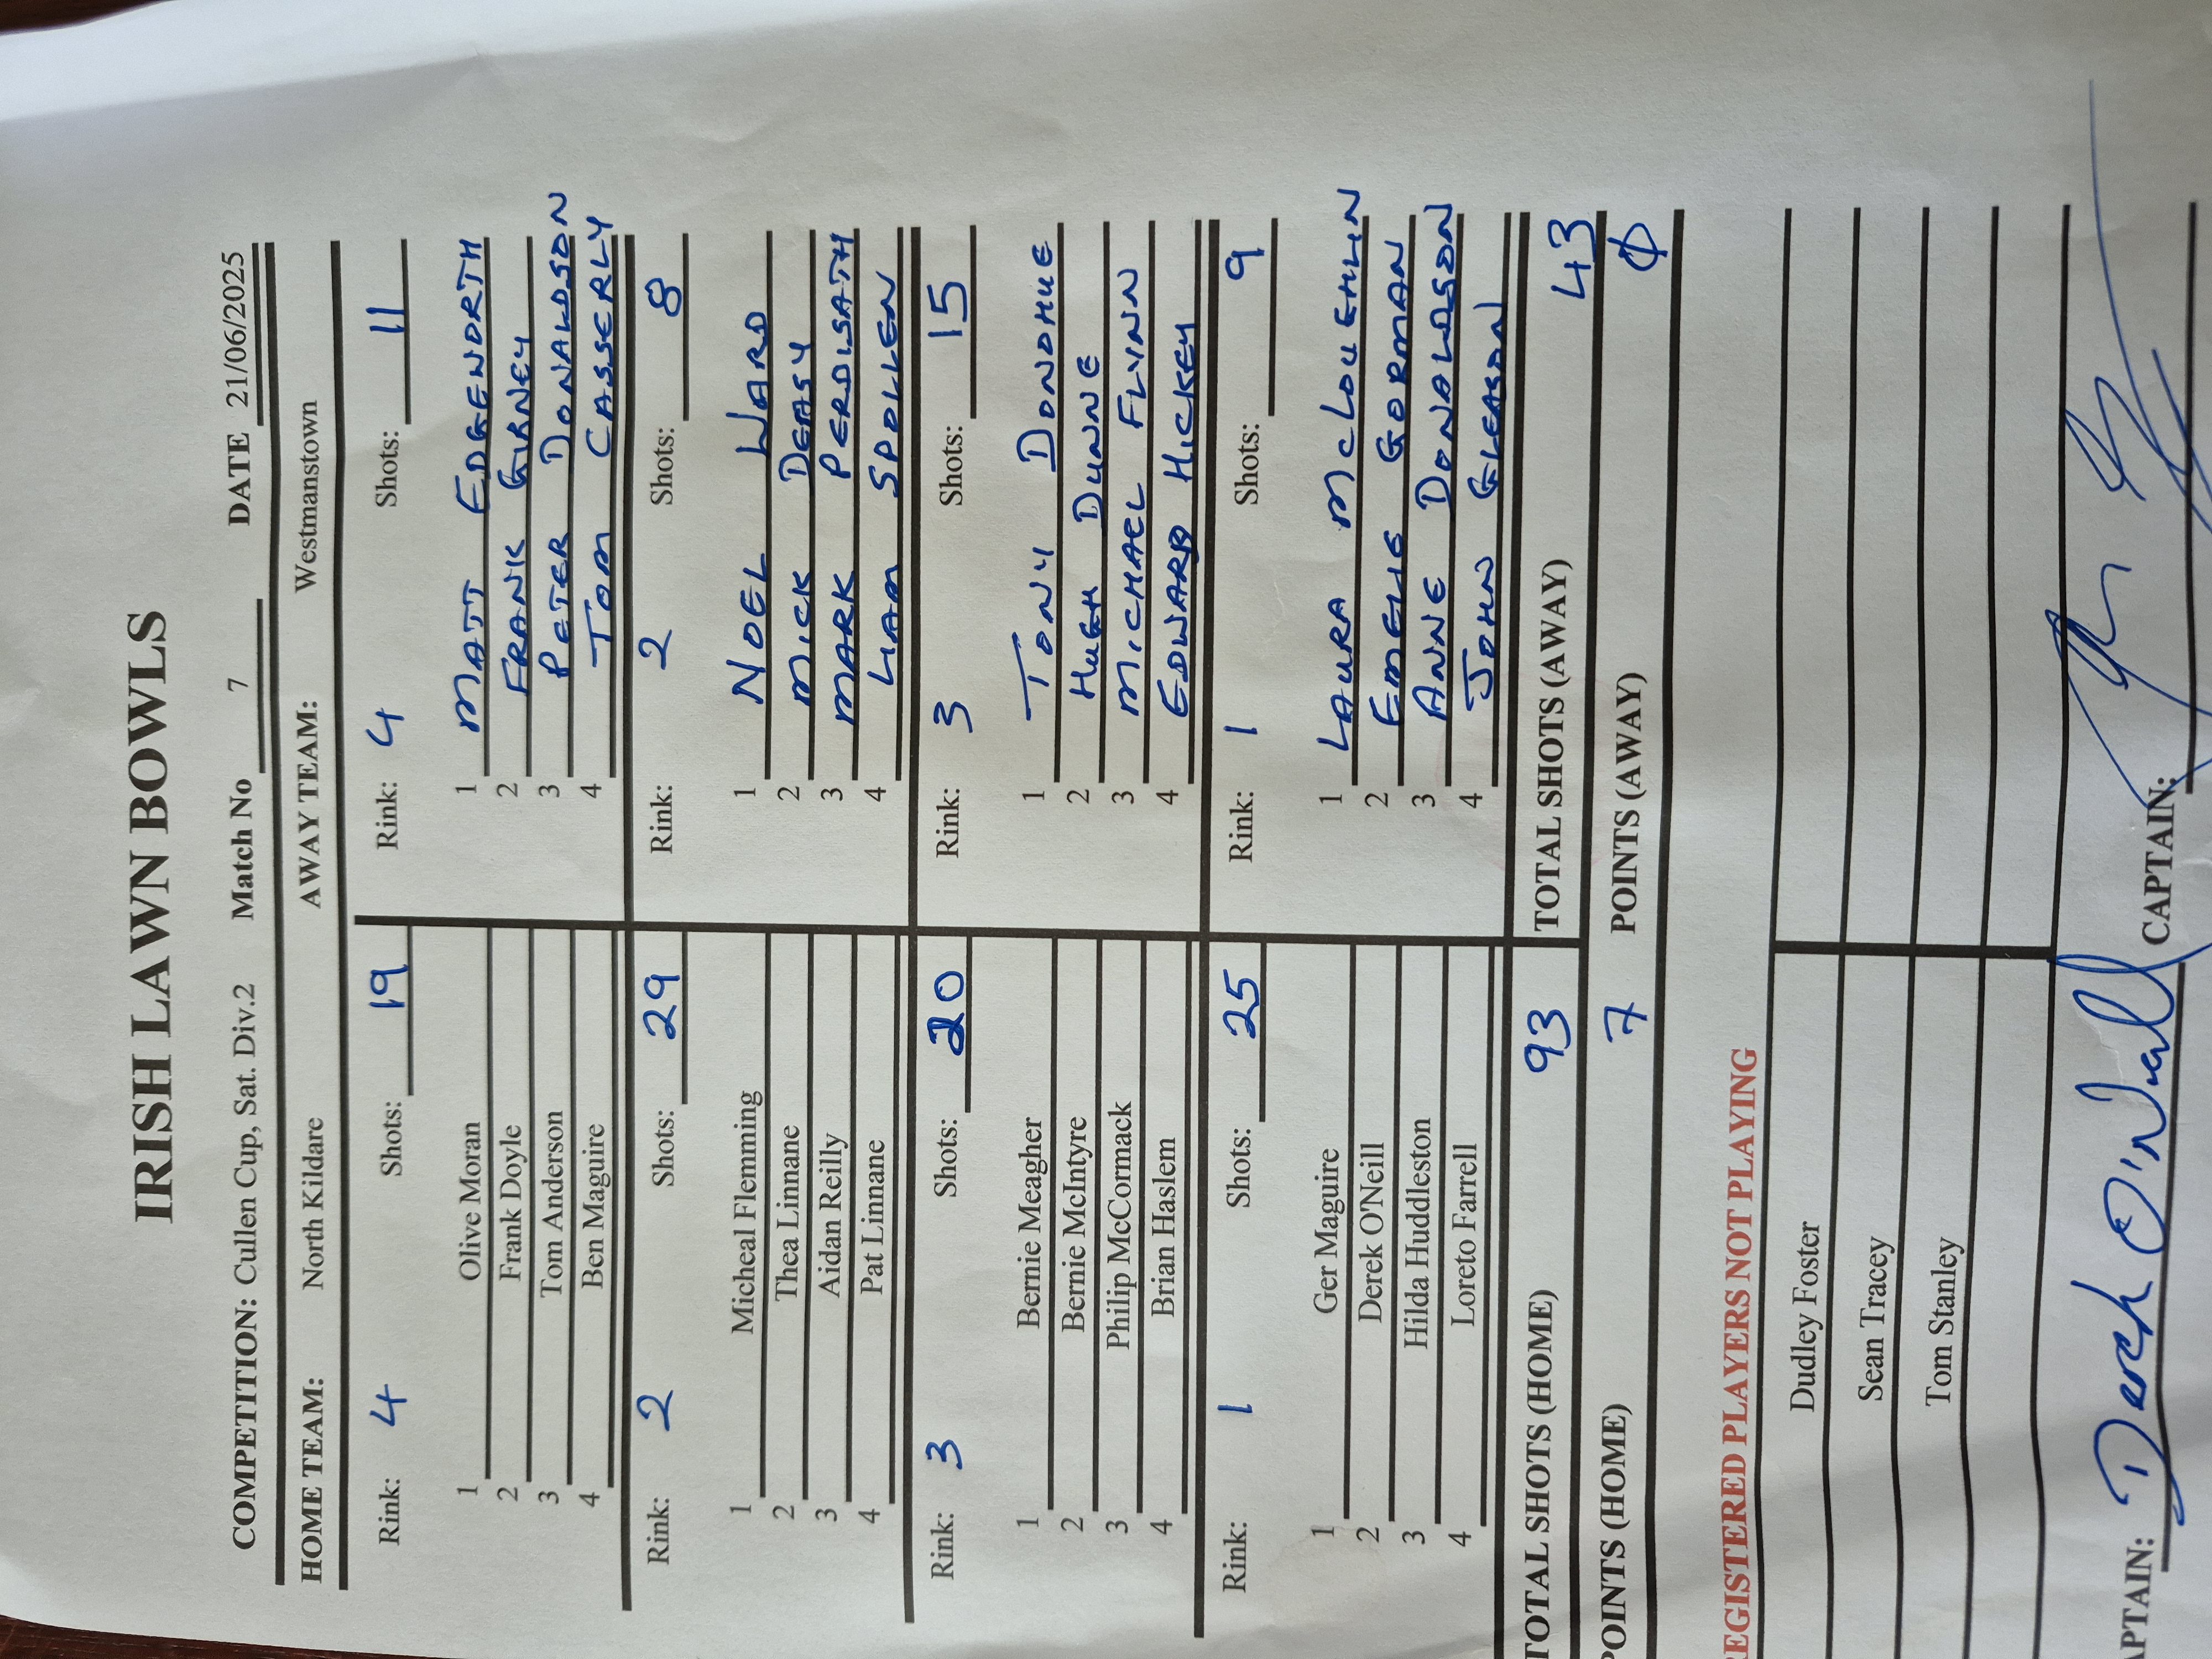 IRISH LAWN BOWLS
COMPETITION: Cullen Cup, Sat. Div.2 Match No 7 DATE 21/06/2025
HOME TEAM: North Kildare AWAY TEAM: Westmanstown
Rink: 4 Shots: 19 Rink: 4 Shots: 11
1 Olive Moran 1 MATT EDGEWORTH
2 Frank Doyle 2 FRANK GURNEY
3 Tom Anderson 3 PETER DONALDSON
4 Ben Maguire 4 TOM CASSERLY
Rink: 2 Shots: 29 Rink: 2 Shots: 8
1 Micheal Flemming 1 NOEL WARD
2 Thea Linnane 2 MICK DEASY
3 Aidan Reilly 3 MARK PERDISATH
4 Pat Linnane 4 LIAM SPOLLEN
Rink: 3 Shots: 20 Rink: 3 Shots: 15
1 Bernie Meagher 1 TONY DONOHUE
2 Bernie McIntyre 2 HUGH DUNNE
3 Philip McCormack 3 MICHAEL FLYNN
4 Brian Haslem 4 EDWARD HICKEY
Rink: 1 Shots: 25 Rink: 1 Shots: 9
1 Ger Maguire 1 LAURA McLOUGHLIN
2 Derek O'Neill 2 GORMAN
3 Hilda Huddleston 3 ANNE DONALDSON
4 Loreto Farrell 4 JOHN GLEASON
TOTAL SHOTS (HOME) 93 TOTAL SHOTS (AWAY) 43
POINTS (HOME) 7 POINTS (AWAY) 0
REGISTERED PLAYERS NOT PLAYING
Dudley Foster
Sean Tracey
Tom Stanley
CAPTAIN: Derek O'Neill CAPTAIN: